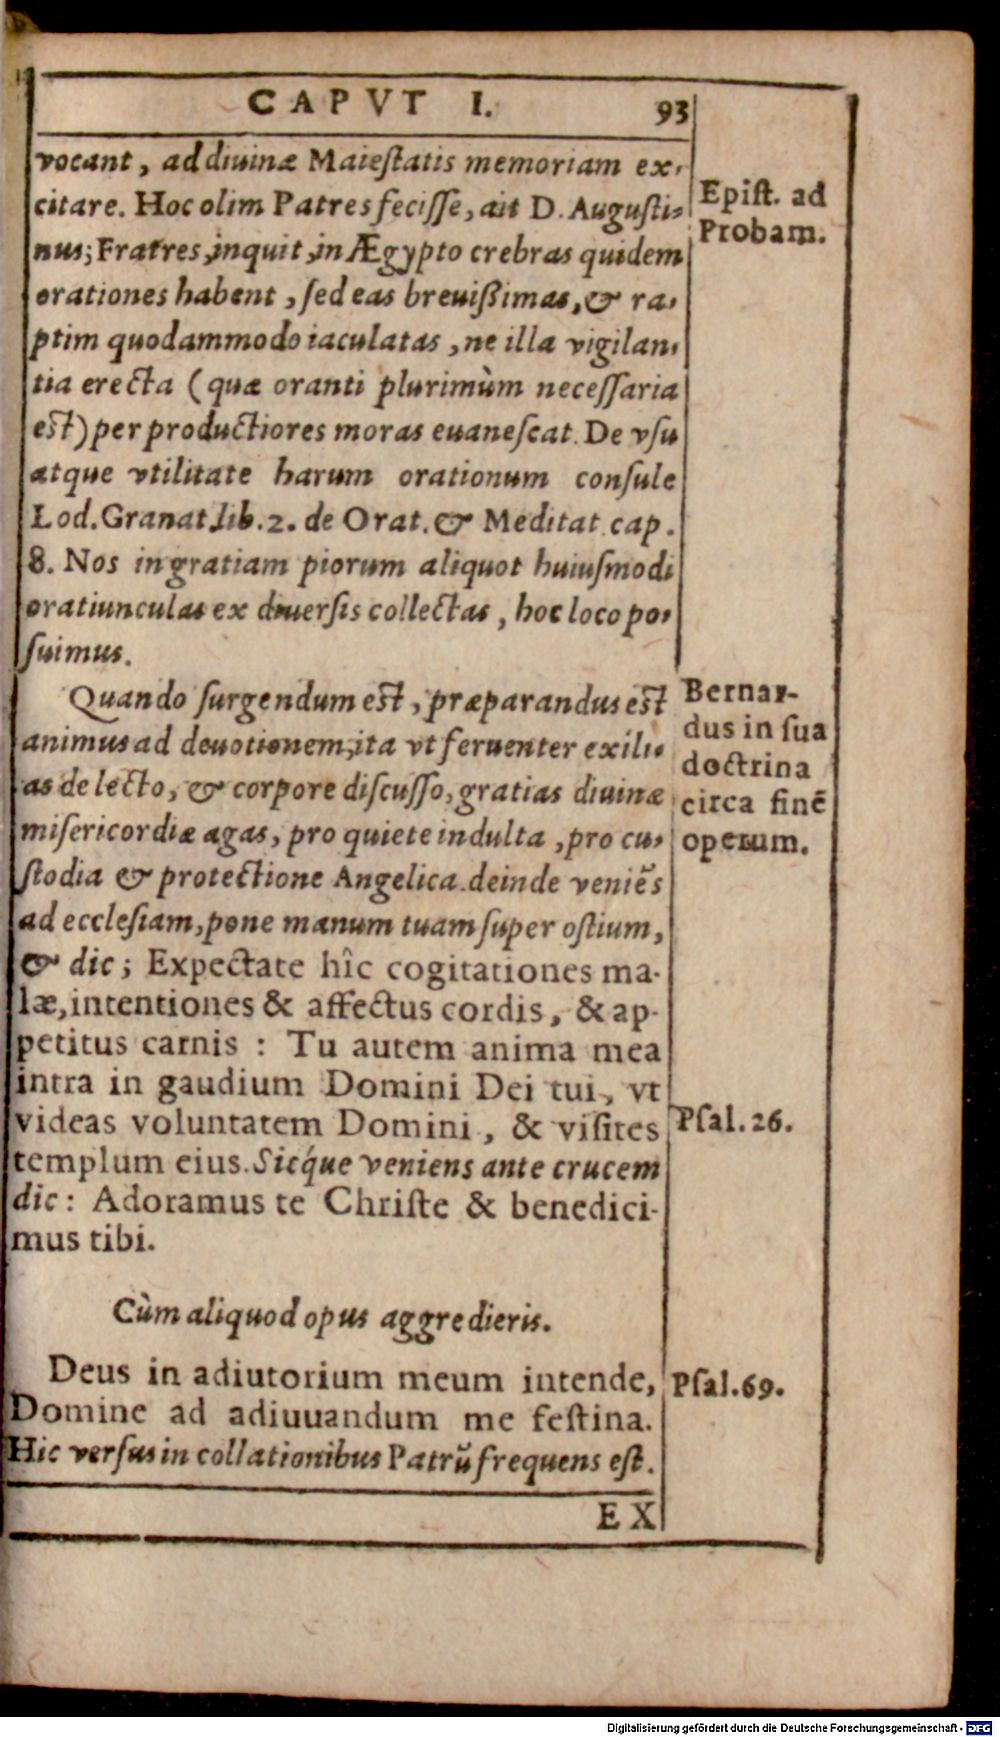 CAPVT I. 93
vocant, ad diuinæ Maiestatis memoriam ex-
citare. Hoc olim Patres fecisse, ait D. Augusti-
nus; Fratres, inquit, in Ægypto crebras quidem
orationes habent, sed eas breuißimas, & ra-
ptim quodammodo iaculatas, ne illa vigilan-
tia erecta (quæ oranti plurimùm necessaria
est) per productiores moras euanescat. De vsu
atque vtilitate harum orationum consule
Lod. Granat. lib. 2. de Orat. & Meditat. cap.
8. Nos in gratiam piorum aliquot huiusmodi
oratiunculas ex diuersis collectas, hoc loco po-
suimus.
Epist. ad
Probam.
Quando surgendum est, præparandus est
animus ad deuotionem, ita vt feruenter exili-
as de lecto, & corpore discusso, gratias diuinæ
misericordiæ agas, pro quiete indulta, pro cu-
stodia & protectione Angelica. deinde veniẽs
ad ecclesiam, pone manum tuam super ostium,
& dic; Expectate hîc cogitationes ma-
læ, intentiones & affectus cordis, & ap-
petitus carnis : Tu autem anima mea
intra in gaudium Domini Dei tui, vt
videas voluntatem Domini, & visites
templum eius. Sicq́ue veniens ante crucem
dic: Adoramus te Christe & benedici-
mus tibi.
Bernar-
dus in sua
doctrina
circa finẽ
operum.
Psal. 26.
Cùm aliquod opus aggredieris.
Deus in adiutorium meum intende,
Domine ad adiuuandum me festina.
Hic versus in collationibus Patrũ frequens est.
Psal. 69.
EX
Digitalisierung gefördert durch die Deutsche Forschungsgemeinschaft - DFG